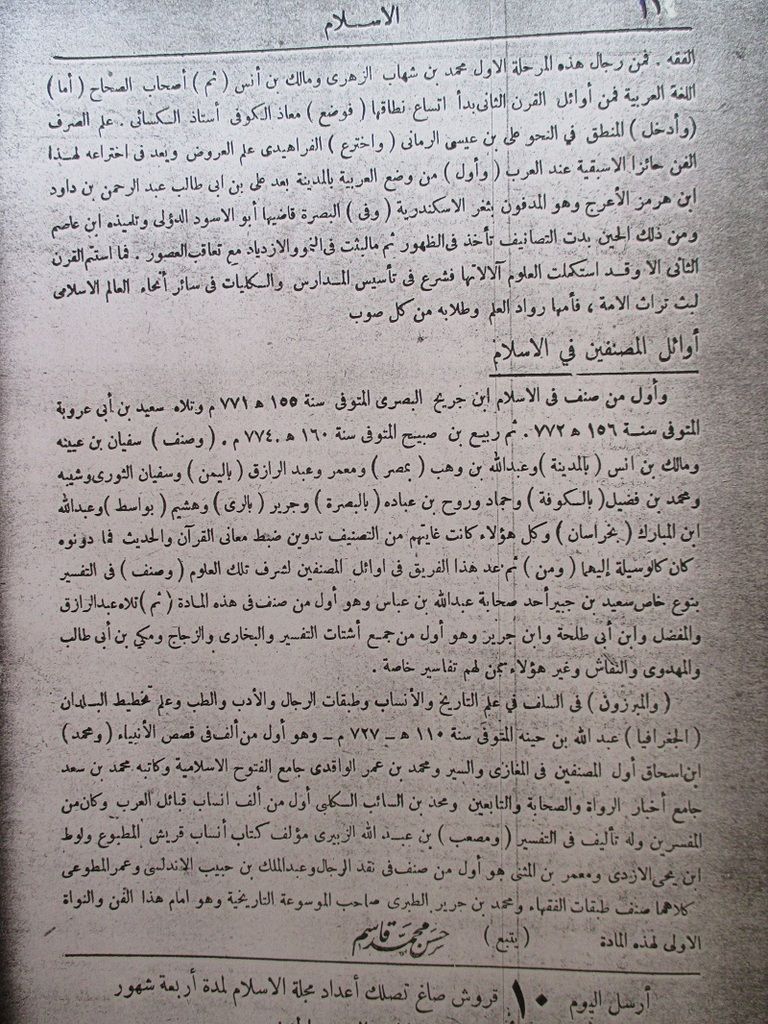 ١٢
الاسلام
الفقه . فمن رجال هذه المرحلة الاول محمد بن شهاب الزهرى ومالك بن أنس ( ثم ) أصحاب الصحاح ( أما )
اللغة العربية فمن أوائل القرن الثانى بدأ اتساع نطاقها ( فوضع ) معاذ الكوفى أستاذ الكسائى . علم الصرف
( وأدخل ) المنطق في النحو على بن عيسى الرمانى ( واخترع ) الفراهيدى علم العروض ويعد فى اختراعه لهذا
الفن حائزا الاسبقية عند العرب ( وأول ) من وضع العربية بالمدينة بعد على بن ابى طالب عبد الرحمن بن داود
ابن هرمز الأعرج وهو المدفون بثغر الاسكندرية ( وفى ) البصرة قاضيها أبو الاسود الدؤلى وتلميذه ابن عاصم
ومن ذلك الحين بدت التصانيف تأخذ فى الظهور ثم مالبثت فى النمو والازدياد مع تعاقب العصور . فما استتم القرن
الثانى الا وقد استكملت العلوم آلالاتها فشرع فى تأسيس المدارس والكليات فى سائر أنحاء العالم الاسلامى
لبث تراث الامة ، فأمها رواد العلم وطلابه من كل صوب
أوائل المصنفين في الاسلام
وأول من صنف فى الاسلام ابن جريح البصرى المتوفى سنة ١٥٥ ه ٧٧١ م وتلاه سعيد بن أبى عروبة
المتوفى سنة ١٥٦ ه ٧٧٢ . ثم ربيع بن صبيح المتوفى سنة ١٦٠ ه . ٧٧٤ م . ( وصنف ) سفيان بن عيينه
ومالك بن انس ( بالمدينة ) وعبدالله بن وهب ( بمصر ) ومعمر وعبد الرازق ( باليمن ) وسفيان الثورى وشيبه
ومحمد بن فضيل ( بالكوفة ) وحماد وروح بن عباده ( بالبصرة ) وجرير ( بالرى ) وهشيم ( بواسط ) وعبدالله
ابن المبارك ( بخراسان ) وكل هؤلاء كانت غايتهم من التصنيف تدوين ضبط معانى القرآن والحديث فما دونوه
كان كالوسيلة إليهما ( ومن ) ثم عد هذا الفريق فى اوائل المصنفين لشرف تلك العلوم ( وصنف ) فى التفسير
بنوع خاص سعيد بن جبير أحد صحابة عبدالله بن عباس وهو أول من صنف فى هذه المادة ( ثم ) تلاه عبد الرازق
والمفضل وابن أبى طلحة وابن جرير وهو أول من جمع أشتات التفسير والبخارى والزجاج ومكي بن أبى طالب
والمهدوى والنقاش وغير هؤلاء ممن لهم تفاسير خاصة .
( والمبرزون ) فى السلف في علم التاريخ والأنساب وطبقات الرجال والأدب والطب وعلم تخطيط البلدان
( الجغرافيا ) عبد الله بن حينه المتوفى سنة ١١٠ ه ــ ٧٢٧ م ــ وهو أول من ألف فى قصص الأنبياء ( ومحمد )
ابن اسحاق أول المصنفين فى المغازى والسير ومحمد بن عمر الواقدى جامع الفتوح الاسلامية وكاتبه محمد بن سعد
جامع أخبار الرواة والصحابة والتابعين ومحمد بن السائب الكلبى أول من ألف انساب قبائل العرب وكان من
المفسرين وله تأليف فى التفسير ( ومصعب ) بن عبد الله الزبيرى مؤلف كتاب أنساب قريش المطبوع ولوط
ابن يحيى الازدى ومعمر بن المثنى هو أول من صنف فى نقد الرجال وعبدالملك بن حبيب الاندلسى وعمر المطوعى
كلاهما صنف طبقات الفقهاء ومحمد بن جرير الطبرى صاحب الموسوعة التاريخية وهو امام هذا الفن والنواة
الاولى لهذه المادة ( يتبع ) حسن محمد قاسم
أرسل اليوم ١٠ قروش صاغ تصلك أعداد مجلة الاسلام لمدة أربعة شهور